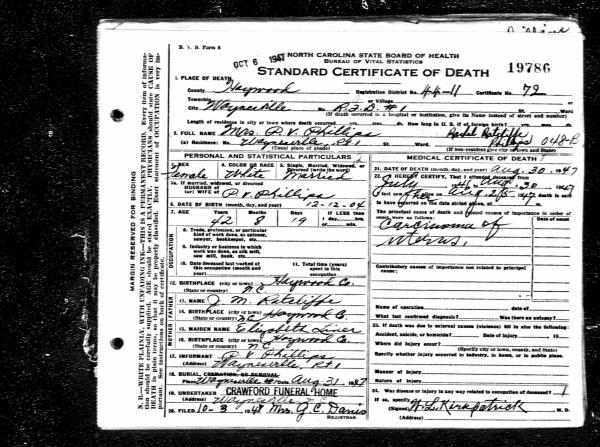 B. V. S. Form 8
OCT 6 1947
NORTH CAROLINA STATE BOARD OF HEALTH
BUREAU OF VITAL STATISTICS
STANDARD CERTIFICATE OF DEATH
19786
1. PLACE OF DEATH
County Haywood Registration District No. 44-11 Certificate No. 72
Township or Village
City Waynesville No. R.F.D. #1 St. Ward
(If death occurred in a hospital or institution, give its Name instead of street and number)
Length of residence in city or town where death occurred yrs. mos. ds. How long in U. S. if of foreign birth? yrs. mos. ds.
2. FULL NAME Mrs. P. V. Phillips Rachel Ratcliffe Phillips 048-B
(a) Residence: No. Waynesville, Rt 1 St. Ward.
(Usual place of abode) (If non-resident give city or town and State)
PERSONAL AND STATISTICAL PARTICULARS
3. SEX 4. COLOR OR RACE 5. Single, Married, Widowed, or Divorced (write the word)
Female White Married
5a. If married, widowed, or divorced
HUSBAND of
(or) WIFE of P. V. Phillips
6. DATE OF BIRTH (month, day, and year) 12-12-04
7. AGE Years Months Days If LESS than 1 day, hrs. or min.
42 8 19
OCCUPATION
8. Trade, profession, or particular kind of work done, as spinner, sawyer, bookkeeper, etc.
9. Industry or business in which work was done, as silk mill, saw mill, bank, etc.
10. Date deceased last worked at this occupation (month and year)
11. Total time (years) spent in this occupation
12. BIRTHPLACE (city or town) Haywood Co.
(State or country) N.C.
FATHER
13. NAME J. M. Ratcliffe
14. BIRTHPLACE (city or town) Haywood Co.
(State or country) N.C.
MOTHER
15. MAIDEN NAME Elizabeth Liner
16. BIRTHPLACE (city or town) Haywood Co.
(State or country) N.C.
17. INFORMANT P. V. Phillips
Waynesville, Rt 1
18. BURIAL, CREMATION, OR REMOVAL
Place Waynesville Date Aug 31 1947
19. UNDERTAKER CRAWFORD FUNERAL HOME
Waynesville, N.C.
20. FILED 10-3 1947 Mrs. G. C. Davis
REGISTRAR.
MEDICAL CERTIFICATE OF DEATH
21. DATE OF DEATH (month, day, and year) Aug. 30 1947
22. I HEREBY CERTIFY, That I attended deceased from
July 1947 to Aug. 30 1947
I last saw alive on 1947 death is said
to have occurred on the date stated above, at m.
The principal cause of death and related causes of importance in order of onset were as follows: Date of onset
Carcinoma of
uterus.
Contributory causes of importance not related to principal cause:
Name of operation date of
What test confirmed diagnosis? Was there an autopsy?
23. If death was due to external causes (violence) fill in also the following:
Accident, suicide, or homicide? Date of injury 19
Where did injury occur?
(Specify city or town, county, and State)
Specify whether injury occurred in industry, in home, or in public place.
Manner of injury
Nature of injury
24. Was disease or injury in any way related to occupation of deceased?
If so, specify
(Signed) H. L. Kirkpatrick M. D.
MARGIN RESERVED FOR BINDING
N. B.—WRITE PLAINLY, WITH UNFADING INK—THIS IS A PERMANENT RECORD. Every item of information should be carefully supplied. AGE should be stated EXACTLY. PHYSICIANS should state CAUSE OF DEATH in plain terms, so that it may be properly classified. Exact statement of OCCUPATION is very important. See instructions on back of certificate.